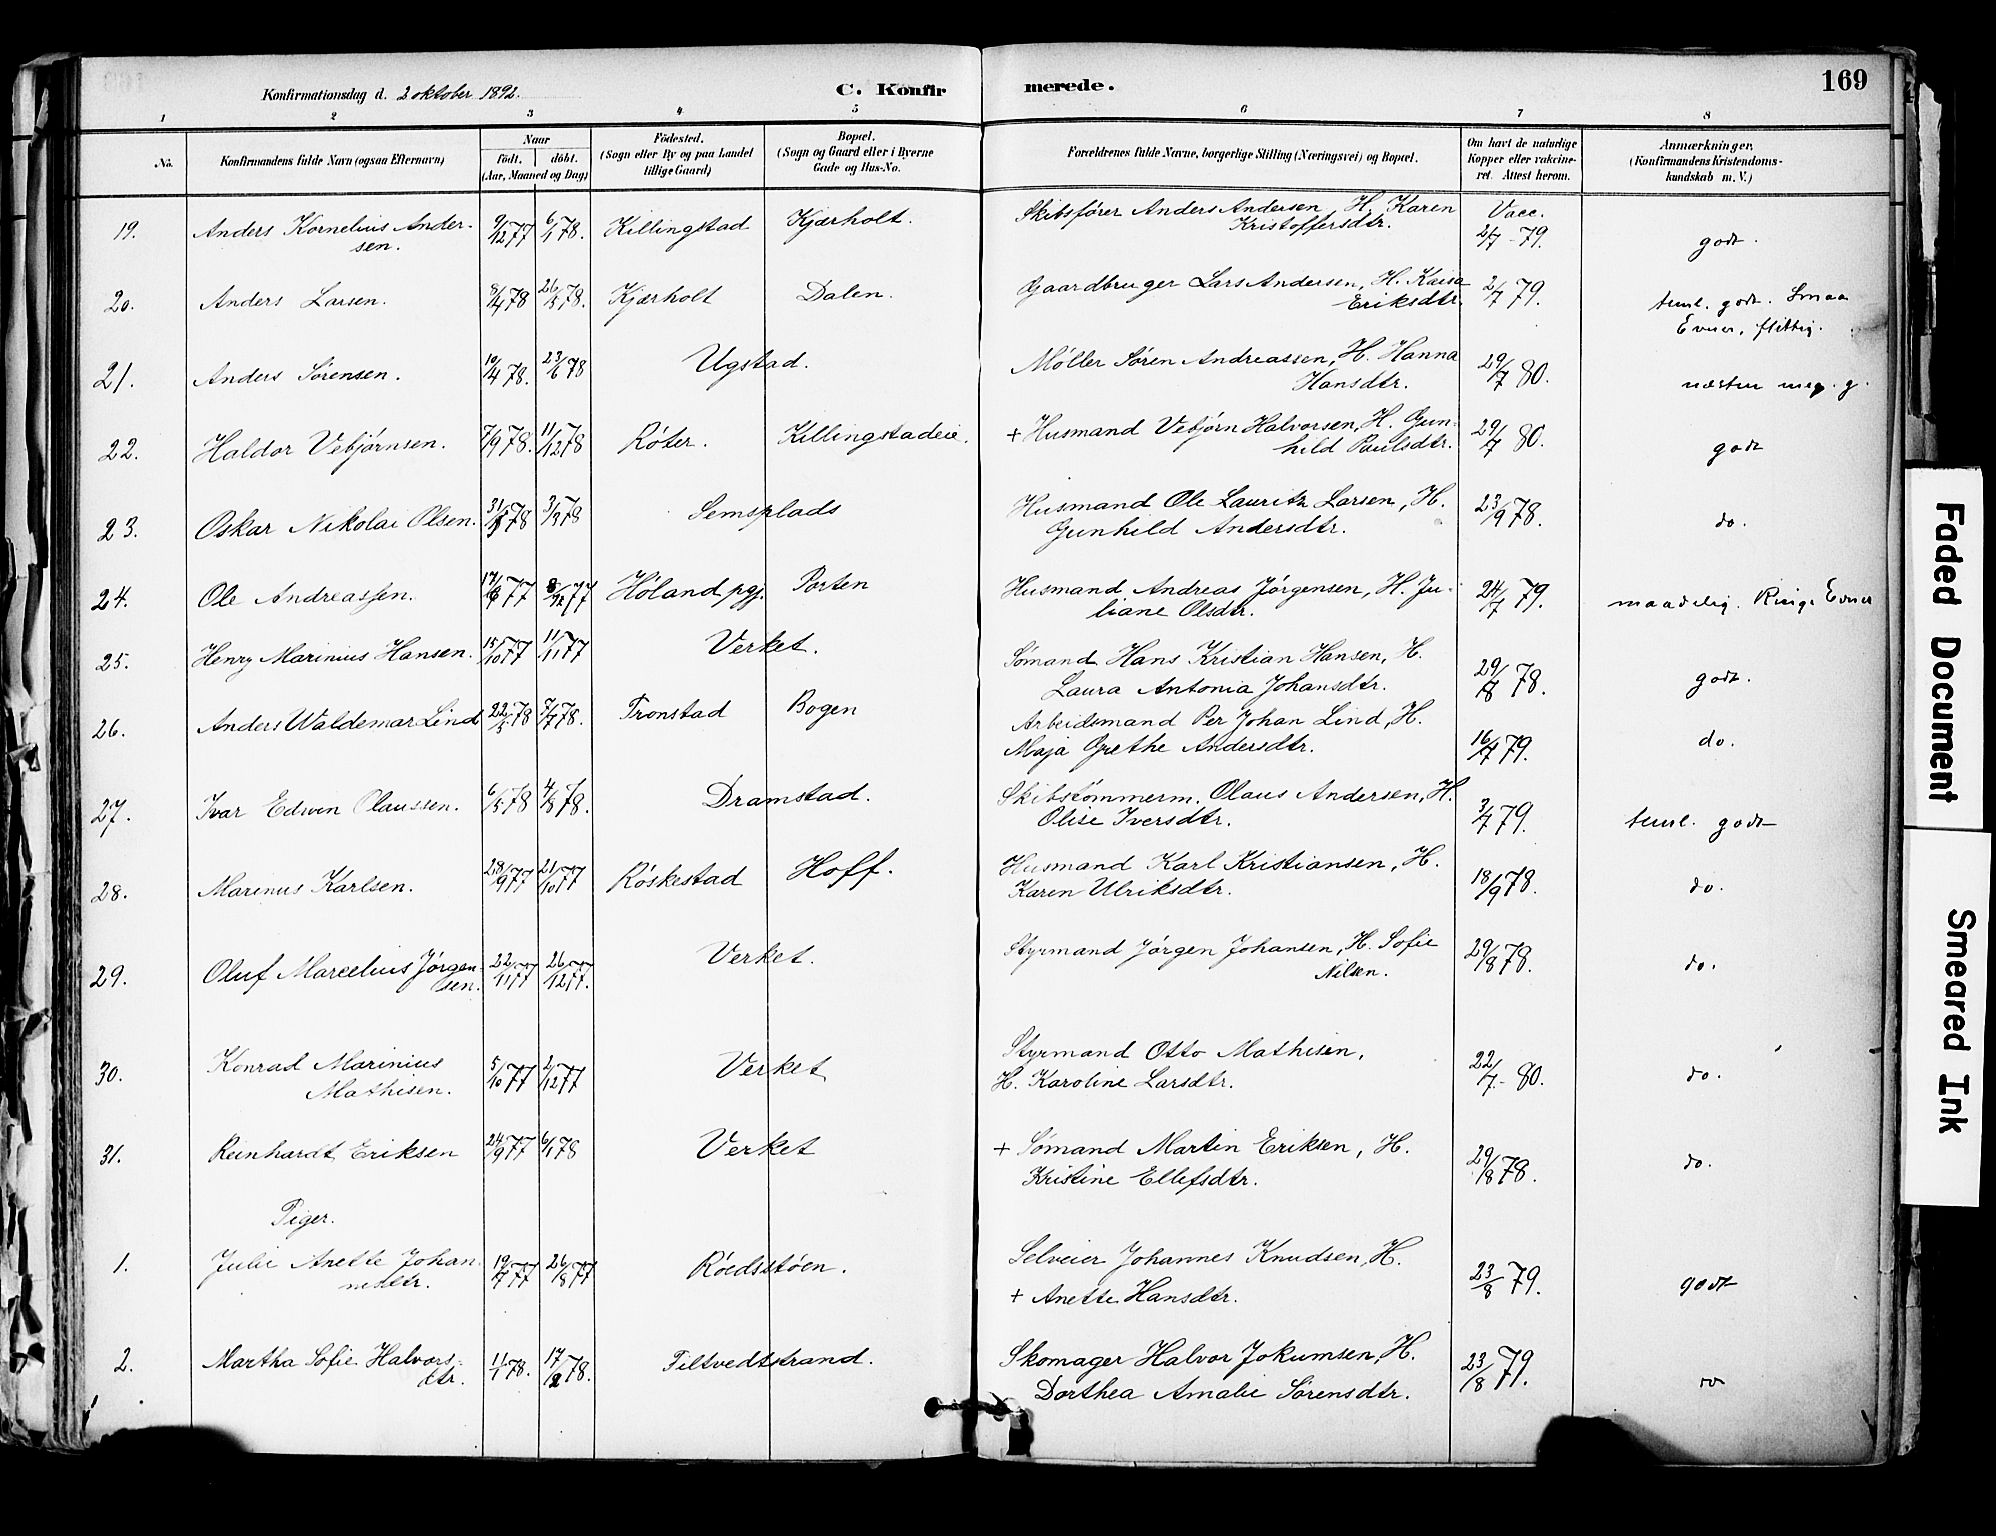 Konfirmationsdag d. 2 oktober 1892.
C. Konfirmerede.
169
1 2 3 4 5 6 7 8
No.
Konfirmandens fulde Navn (ogsaa Efternavn)
Naar
født. døbt.
(Aar, Maaned og Dag)
Fødested.
(Sogn eller By og paa Landet
tillige Gaard)
Bopæl.
(Sogn og Gaard eller i Byerne
Gade og Hus-No.
Forældrenes fulde Navne, borgerlige Stilling (Næringsvei) og Bopæl.
Om havt de naturlige
Kopper eller vakcine-
ret. Attest herom.
Anmærkninger.
(Konfirmandens Kristendoms-
kundskab m. V.)
19. Anders Kornelius Ander- 9/12 77 6/1 78. Killingstad Kjærholt. Skibsfører Anders Andersen, H. Karen Vacc.
sen. Kristoffersdtr. 2/7 - 79. godt.
20. Anders Larsen. 8/4 78 26/5 78. Kjærholt Dalen. Gaardbruger Lars Andersen, H. Kaisa 2/7 79. teml. godt. Smaa
Eriksdtr. Evner, flittig.
21. Anders Sørensen. 10/4 78. 23/6 78 Ugstad. Møller Søren Andreassen, H. Hanna 29/7 80.
Hansdtr. næsten meg. g.
22. Haldor Vebjørnsen. 7/9 78. 11/12 78 Røter. Killingstadeie. + Husmand Vebjørn Halvorsen, H. Gun- 29/7 80.
hild Paulsdtr. godt
23. Oskar Nikolai Olsen. 78 3/3 78 Semsplads Husmand Ole Lauritz Larsen, H. 23/9 78.
Gunhild Andersdtr. do.
24. Ole Andreassen. 77 77 Høland pgj. Porten Husmand Andreas Jørgensen, H. Ju- 24/7 79. maadelig. Ringe Evner
liane Olsdtr.
25. Henry Marinius Hansen. 15/10 77 11/11 77 Verket. Sømand Hans Kristian Hansen, H. 29/8 78.
Laura Antonia Johansdtr. godt.
26. Anders Waldemar Lind 22/5 78 5/7 78. Tronstad Bogen Arbeidsmand Per Johan Lind, H.
Maja Grethe Andersdtr. 16/7 79. do.
27. Ivar Edwin Olaussen. 6/5 78 4/8 78. Dramstad. Skibstømmerm. Olaus Andersen, H.
Olise Iversdtr. 3/7 79. teml. godt
28. Marinus Karlsen. 28/9 77 21/10 77 Røskestad Hoff. Husmand Karl Kristiansen, H.
Karen Ulriksdtr. 18/9 78. do.
29. Oluf Marcelius Jørgen- 22/11 77 26/12 77. Verket. Styrmand Jørgen Johansen, H. Sofie 29/8 78.
sen. Nilsen. do.
30. Konrad Marinius 5/10 77 2/12 77 Verket Styrmand Otto Mathisen,
Mathisen. H. Karoline Larsdtr. 22/7 - 80. do.
31. Reinhardt Eriksen 24/9 77 6/1 78 Verket + Sømand Martin Eriksen, H.
Kristine Ellefsdtr. 29/8 78. do.
Piger.
1. Julie Anette Johan- 19/7 77 26/8 77 Røedsstøen. Selveier Johannes Knudsen, H.
nesdtr. + Anette Hansdtr. 23/8 79. godt
2. Martha Sofie Halvors- 11/1 78. 17/2 78. Tiltvedtstrand. Skomager Halvor Jokumsen, H.
dtr. Dorthea Amalie Sørensdtr. 23/8 79. do
Faded Document
Smeared Ink